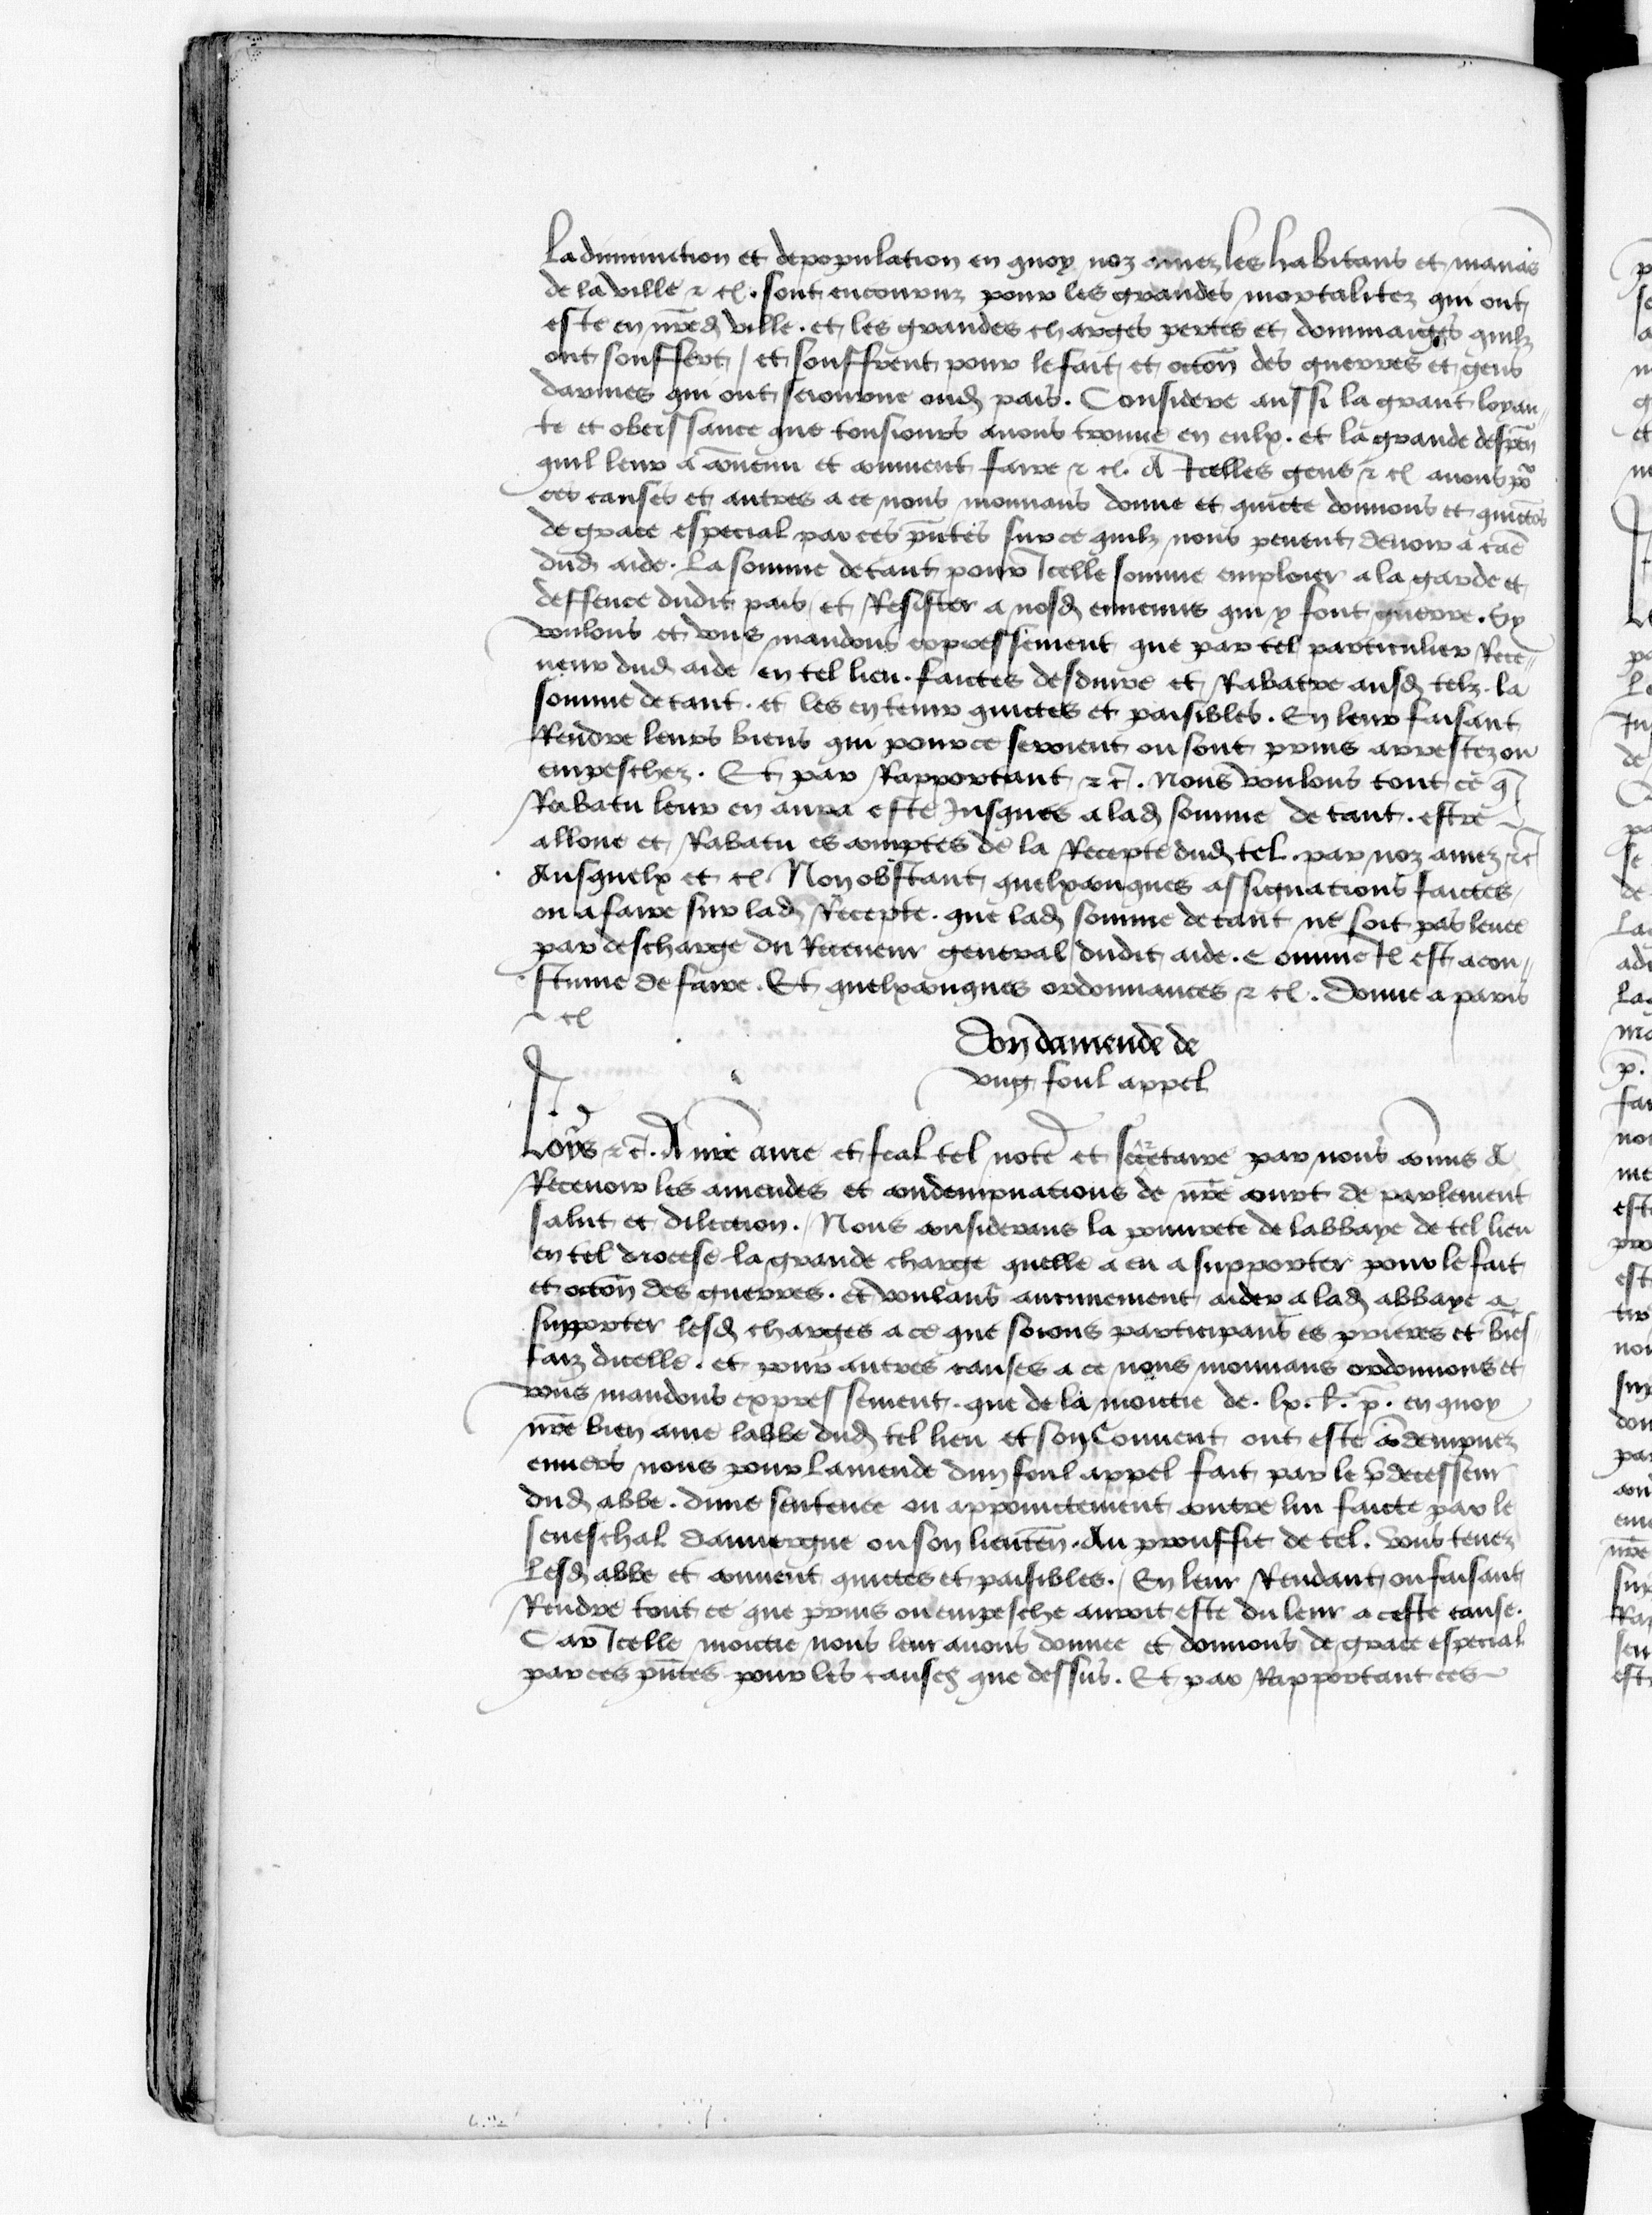 La diminucion et depopulation en quoy noz amez les habitans et manãs
de la ville ⁊ cͭ. sont encouruz pour les grandes mortalitez qui ont
este en nr̃ed ville. et les grandes charges pertes et dommaiges quilz
ont souffert / et souffrent pour le fait et occõn des guerres et gens
darmes qui ont seiourne oud pais. Considere aussi la grant loyau-
te et obeissance que tousiours auons trouue en eulx. et la grande despẽn
quil leur a cõuenu et conuient faire ⁊ cͭ. A Icelles gens ⁊ cͭ auons po᷑
ces causes et autres a ce nous mouuans donne et quicte donnons et quictõs
de grace especial par ces pñtes sur ce quilz nous peuent deuoir a caẽ
dud aide. La somme de tant pour Icelle somme emploier a la garde et
deffence dudit pais / et Resister a nosd ennemis qui y font guerre. Sy
voulons et vous mandons expressement que par tel particulier Rece-
ueur dud aide en tel lieu. faictes desduire et Rabatre ausd telz. la
somme de tant. et les en tenir quictes et paisibles. En leur faisant
Rendre leurs biens qui pource seroient ou sont prins arrestez ou
empeschez. Et par Rapportant ⁊ c̃. Nous voulons tout ce q̃
Rabatu leur en aura este Jusques a lad somme de tant. estre
alloue et Rabatu es comptes de la Recepte dud tel. par noz amez ⁊ c̃
Ausquelx et cͭ. Non obstant quelxconques assignations faictes
ou a faire sur lad Recepte. que lad somme de tant ne soit pas leuee
par descharge du Receueur general dudit aide. Comme Il est acou-
stume de faire. Et quelxconques ordonnances ⁊ cͭ. Donne a paris
⁊ cͭ
Don damende de
vng foul appel
Loys ⁊ c̃. A nr̃e ame et feal tel note᷑ et secretaire par nous cõmis A
Receuoir les amendes et condempnations de nr̃e court de parlement
salut et dilection. / Nous considerans la pourete de labbaye de tel lieu
en tel diocese la grande charge quelle a eu a supporter pour le fait
et occõn des guerres. et voulans aucunement aider a lad abbaye a
supporter lesd charges a ce que soions participans es prieres et biẽs
faiz dicelle. et pour autres causes a ce nous mouuans ordonnons et
vous mandons expressement. que de la moictie de. lx. l. p̃. en quoy
nr̃e bien ame labbe dud tel lieu et son Conuent ont este cõdempnez
enuers nous pour lamende dun foul appel fait par le p̃decesseur
dud abbe. dune sentence ou appoinctement contre lui faicte par le
seneschal dauuergne ou son lieuteñ. Au prouffit de tel. Vous tenez
Lesd abbe et conuent quictes et paisibles. / En leur Rendant ou faisant
Rendre tout ce que prins ou empesche auroit este du leur a ceste cause.
Car Icelle moictie nous leur auons donnee et donnons de grace especial
par ces pñtes pour les causes que dessus. Et par Rapportant ces